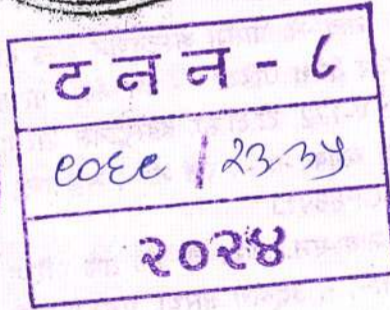 ट न न - ८
९०६९ / २३ ३५
२०२४